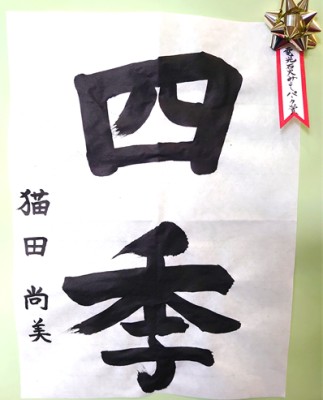 四季
猫田尚美